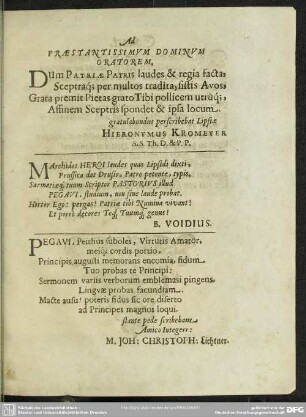 Ad
PRÆSTANTISSIMVM DOMINVM
ORATOREM,
DUm PATRIÆ PATRIS laudes & regia facta,
Sceptraq; per multos tradita, sistis Avos,
Grata premit Pietas grato Tibi pollicem utrûq;,
Affinem Sceptris spondet & ipsa locum.
gratulabundus perscribebat Lipsiæ
HIERONYMUS KROMEYER
S.S. Th. D. & P. P.
MArchidos HEROI laudes quas Lipsidi dixti,
Prussica dos Drusis, Patre petente, typis,
Sarmatieq; tuum Scriptor PASTORIUS illud
PEGAVI, studium, non sine laude probat.
Hortor Ego: pergas! Patriæ tibi Numina vivant!
Et porrò decores Teq; Tuumq; genus!
B. VOIDIUS.
PEGAVI, Peithus suboles, Virtutis Amator,
meiq; cordis portio,
Principis augusti memorans encomia, fidum
Tuo probas te Principi:
Sermonem variis verborum emblemasi pingens,
Lingvæ probas facundiam.
Macte ausu! poteris fidus sic ore diserto
ad Principes magnos loqui.
stante pede scribebam
Amico Integerr:
M. JOH: CHRISTOPH: Lichtner.